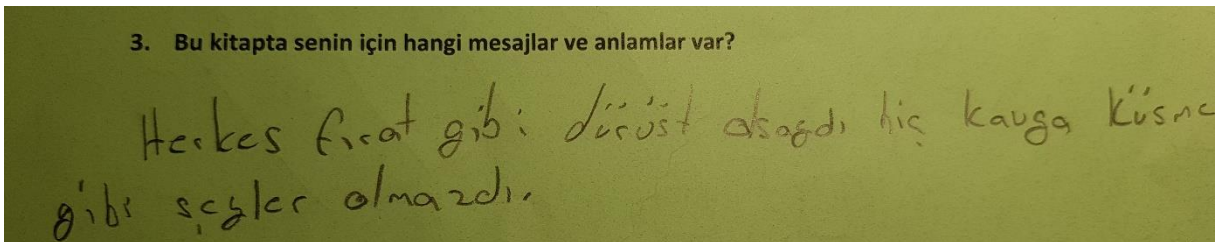 3. Bu kitapta senin için hangi mesajlar ve anlamlar var?
Herkes fırat gibi dürüst olsaydı hiç kavga küsme
gibi şeyler olmazdı.